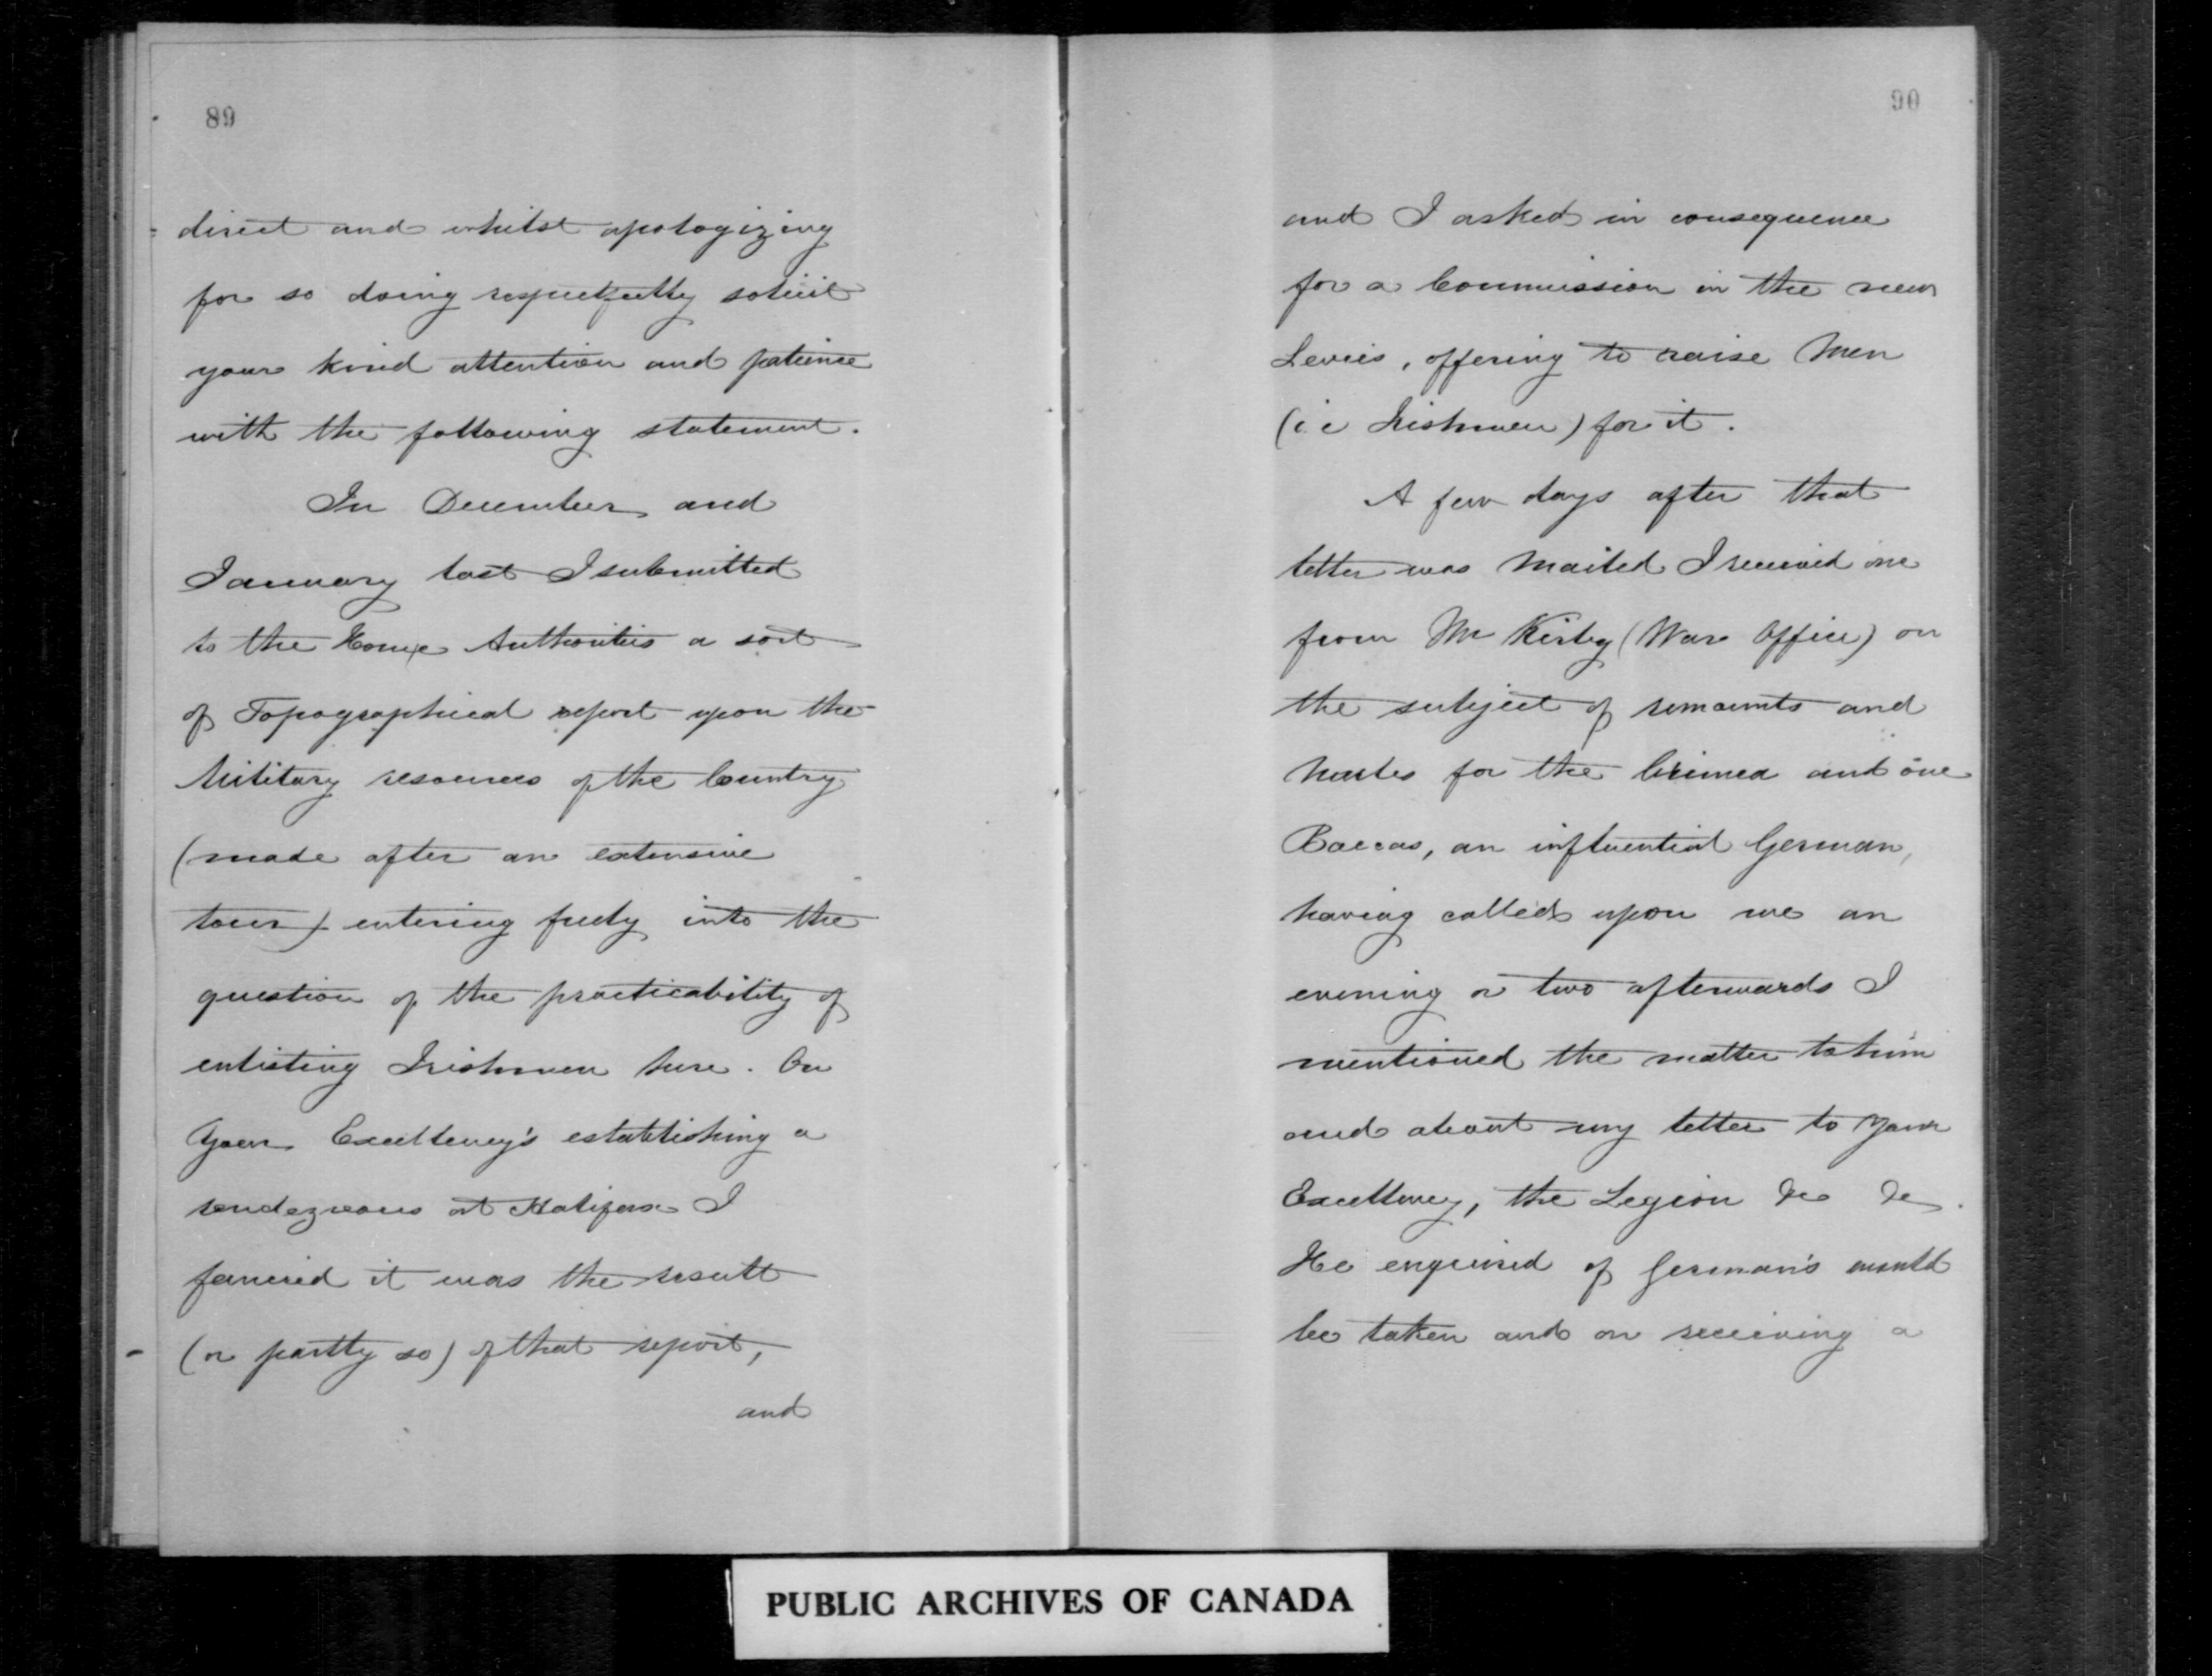 89
direct and whilst apologizing
for so doing respectfully solicit
your kind attention and patience
with the following statement.
In December and
January last I submitted
to the Home Authorities a sort
of Topographical report upon the
Military resources of the Country
(made after an extensive
tour) entering freely into the
question of the practicability of
enlisting Irishmen here. On
Your Excellency's establishing a
rendezvous at Halifax I
fancied it was the result
(or partly so) of that report,
and
90
and I asked in consequence
for a Commission in the new
Levies, offering to raise Men
(i e Irishmen) for it.
A few days after that
letter was Mailed I received one
from Mr Kirby (War Office) on
the subject of remounts and
Mules for the Crimea and one
Baccas, an influential German,
having called upon me an
evening or two afterwards I
mentioned the matter to him
and about my letter to Your
Excellency, the Legion &c &c.
He enquired if German's would
be taken and on receiving a
PUBLIC ARCHIVES OF CANADA